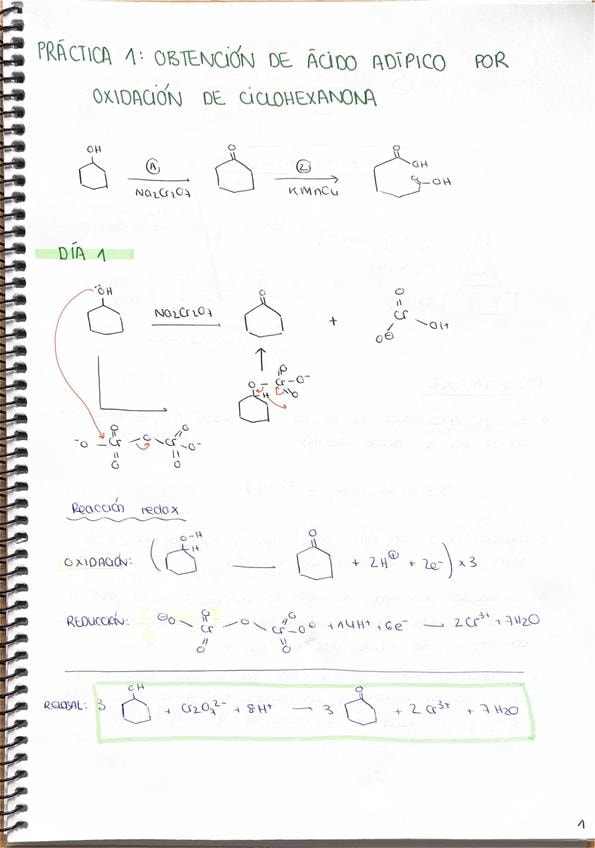 PRÁCTICA 1: OBTENCIÓN DE ÁCIDO ADÍPICO POR
OXIDACIÓN DE CICLOHEXANONA
OH
O
O
OH
OH
A
Na2Cr2O7
2
KMnO4
DÍA 1
OH
Na2Cr2O7
O
+
O
Cr
O⊖
OH
O
O
Cr
O-
O
H
-O
O
Cr
O
O
Cr
O
O-
O
Reacción redox
OXIDACIÓN: ( O-H H —— O + 2H⊕ + 2e- ) x3
REDUCCIÓN: ⊖O O Cr O O Cr O O⊖ O + 14H+ + 6e- → 2Cr3+ + 7H2O
R.GLOBAL: 3 OH + Cr2O7 2- + 8H+ → 3 O + 2Cr3+ + 7H2O
1